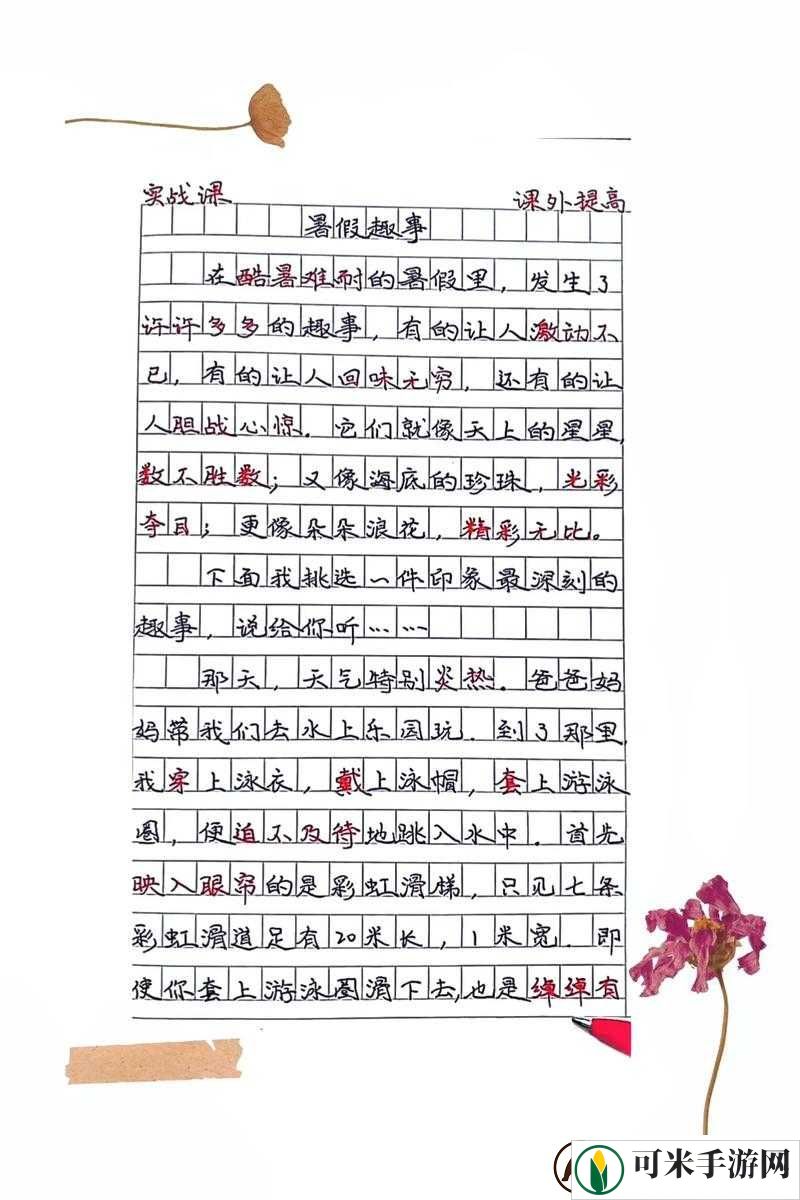 实战课 课外提高
暑假趣事
在酷暑难耐的暑假里，发生了
许许多多的趣事，有的让人激动不
已，有的让人回味无穷，还有的让
人胆战心惊．它们就像天上的星星，
数不胜数；又像海底的珍珠，光彩
夺目；更像朵朵浪花，精彩无比。
下面我挑选一件印象最深刻的
趣事，说给你听……
那天，天气特别炎热．爸爸妈
妈带我们去水上乐园玩．到了那里，
我穿上泳衣，戴上泳帽，套上游泳
圈，便迫不及待地跳入水中．首先
映入眼帘的是彩虹滑梯，只见七条
彩虹滑道足有20米长，1米宽．即
使你套上游泳圈滑下去，也是绰绰有
可米手游网